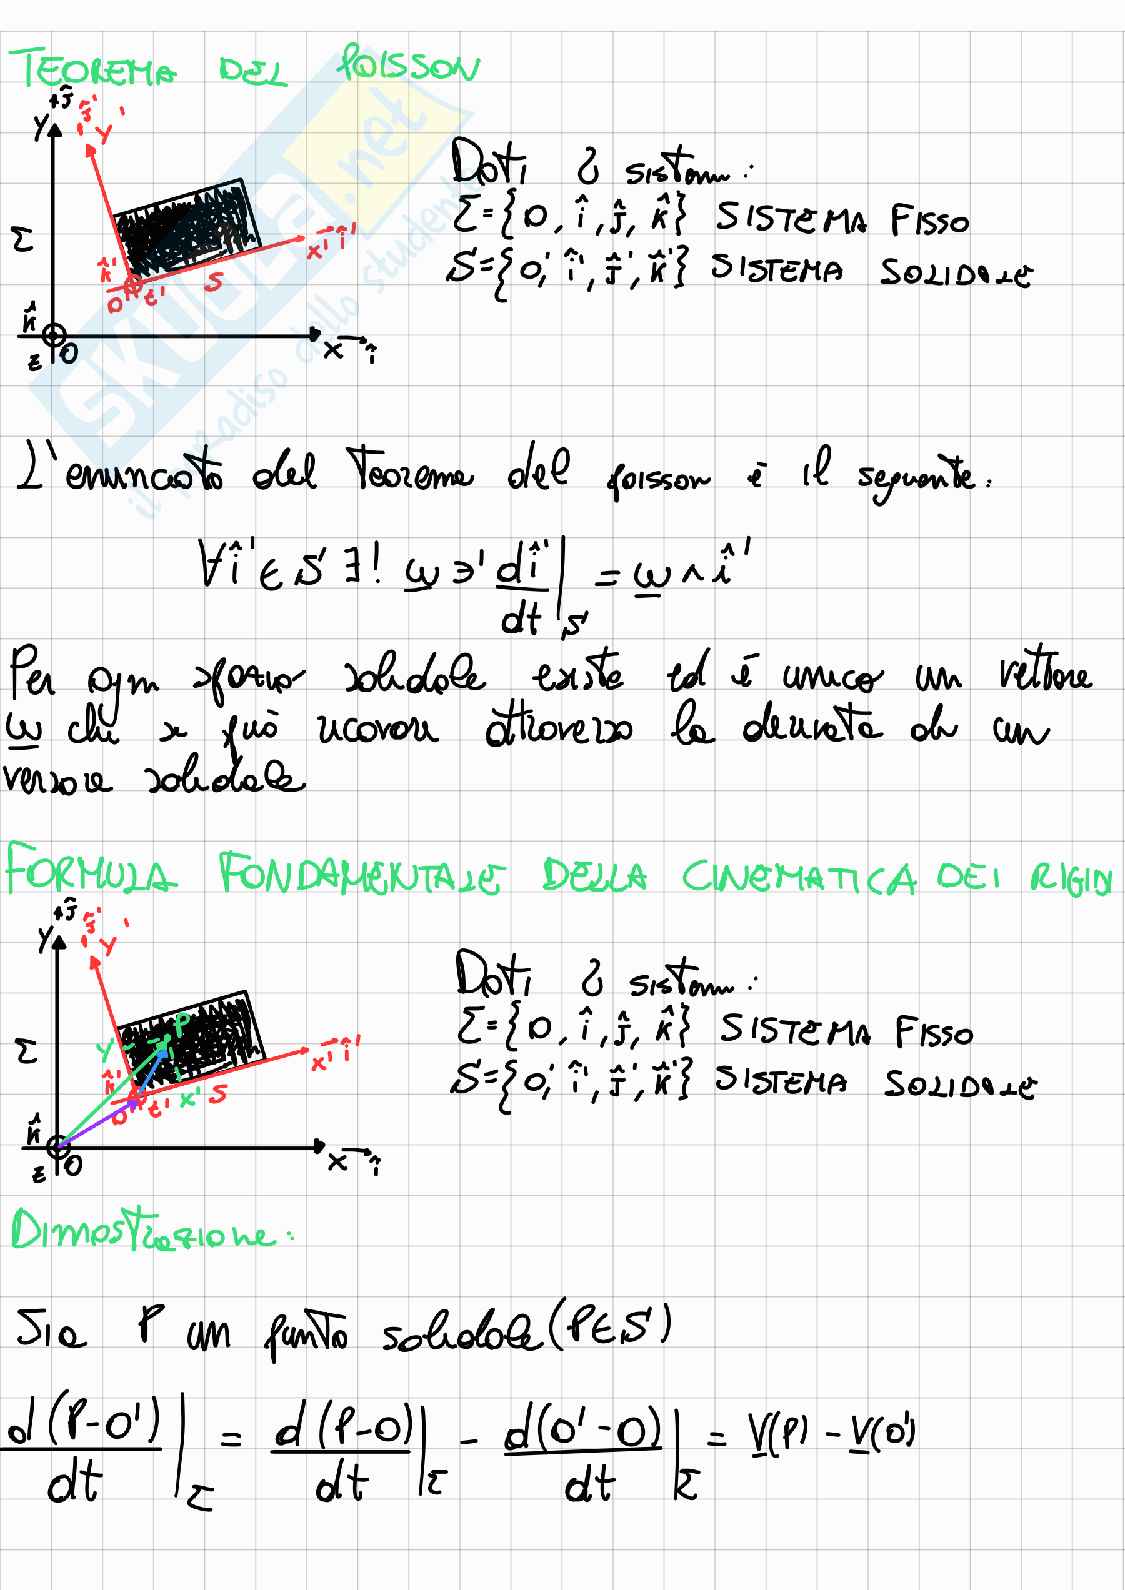 TEOREMA DEL POISSON
+ĵ ĵ'
Y Y'
Σ
k̂' O' z' S x' î'
k̂
z O x î
Dati 2 sistemi:
Σ={O, î, ĵ, k̂} SISTEMA FISSO
S={O', î', ĵ', k̂'} SISTEMA SOLIDALE
SKUOLA.net
il paradiso dello studente
L'enunciato del Teorema del poisson è il seguente:
∀ î' ∈ S ∃! ω ∋' dî'/dt|S = ω ∧ î'
Per ogni spazio solidale esiste ed è unico un vettore
ω che si può ricavare attraverso la derivata di un
versore solidale
FORMULA FONDAMENTALE DELLA CINEMATICA DEI RIGIDI
+ĵ ĵ'
Y Y'
Σ Y' P
k̂' O' z' x' S x' î'
k̂
z O x î
Dati 2 sistemi:
Σ={O, î, ĵ, k̂} SISTEMA FISSO
S={O', î', ĵ', k̂'} SISTEMA SOLIDALE
Dimostrazione:
Sia P un punto solidale (P∈S)
d(P-O')/dt|Σ = d(P-O)/dt|Σ - d(O'-O)/dt|Σ = V(P) - V(O')